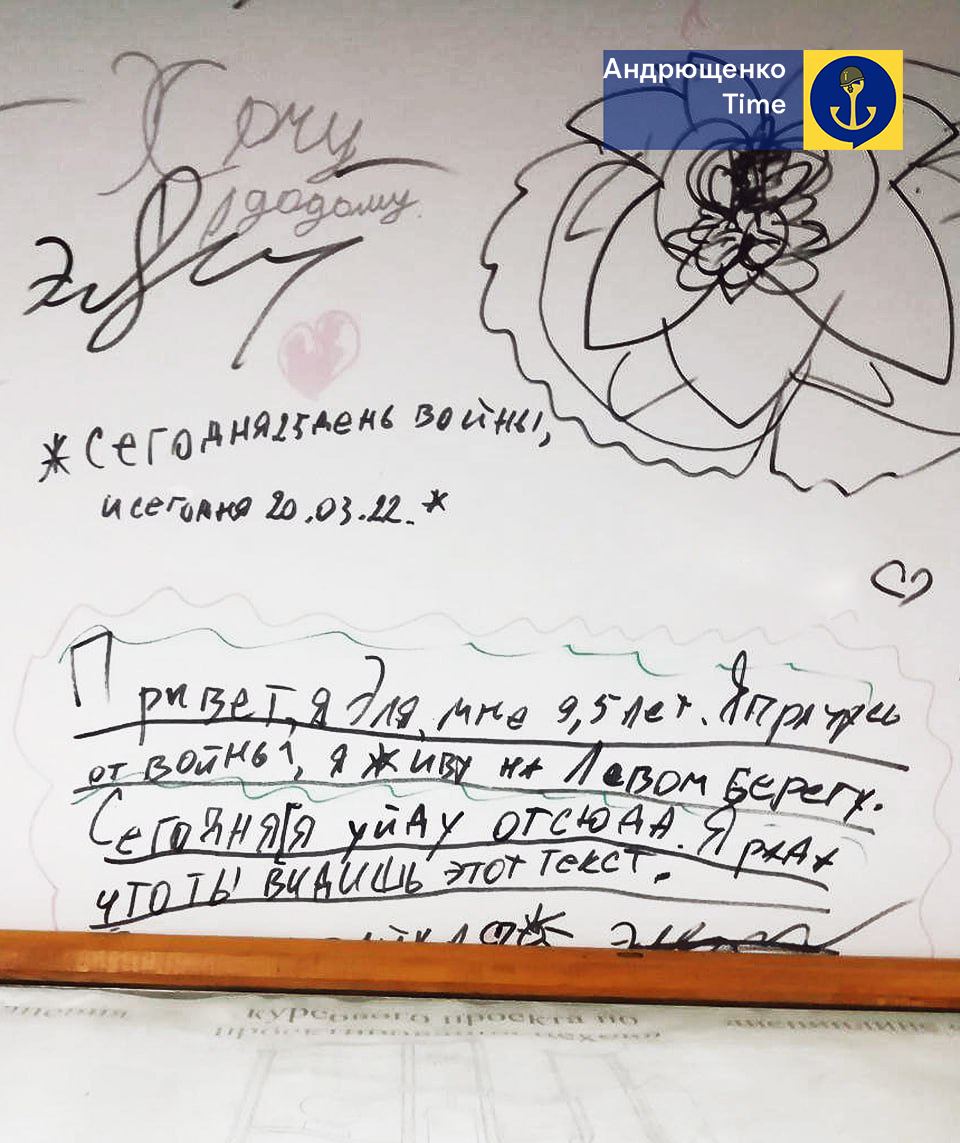 Андрющенко
Time
Хочу
додому.
*Сегодня 25 день войны,
и сегодня 20.03.22.*
Привет, я Эля, мне 9,5 лет. Я прячусь
от войны, я живу на Левом Берегу.
Сегодня я уйду отсюда. Я рада
что ты видишь этот текст.
курсового проекта по